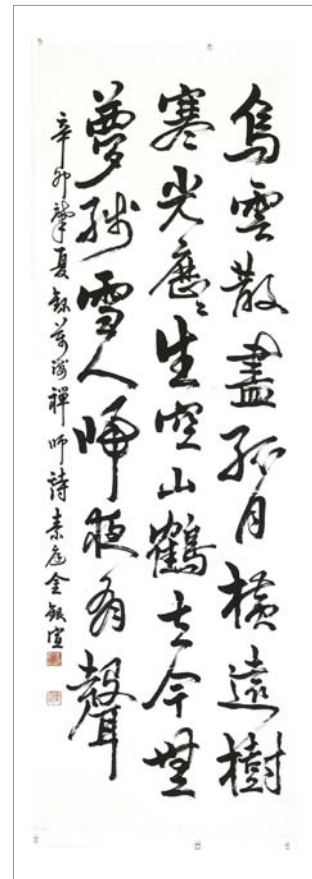 烏雲散盡孤月橫遠樹
寒光歷々生空山鶴去今無
夢殘雪人歸夜有聲
辛卯肇夏錄萬海禪師詩 素庭金銀宣